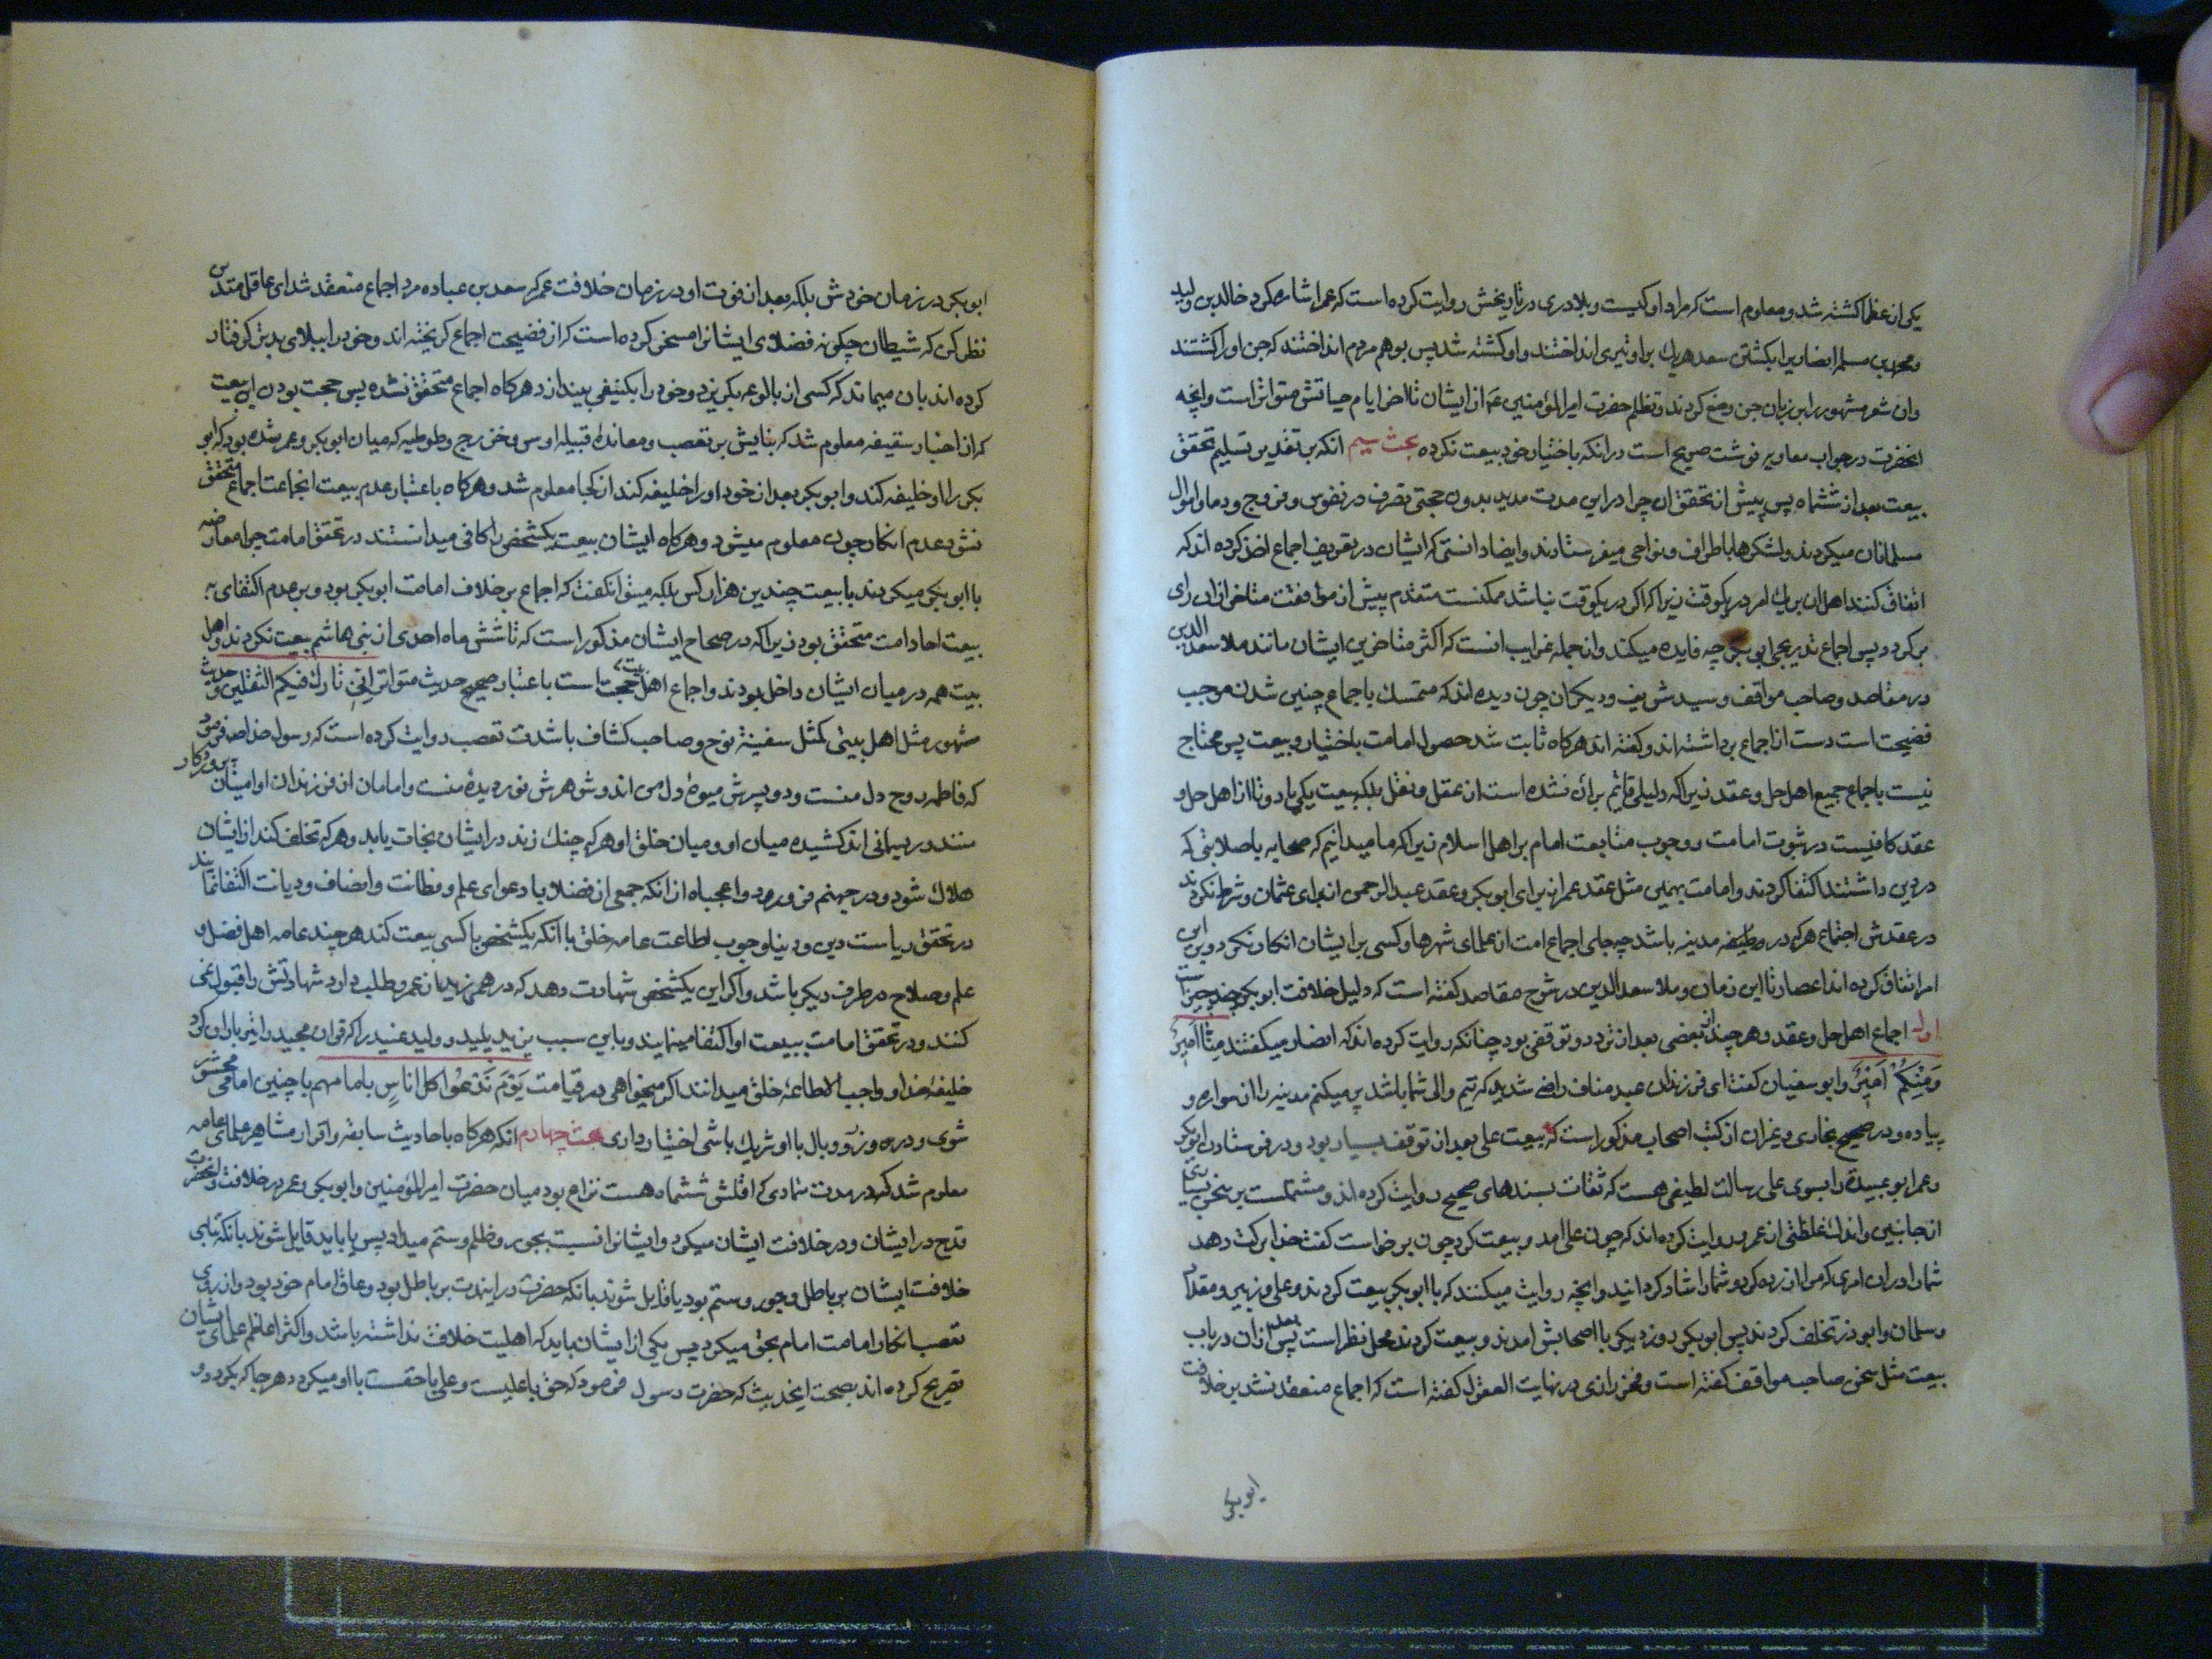 یکی از عظما کشته شد و معلوم است که مراد او کیست و بلادری در تاریخش روایت کرده است که عمر اشاره کرد خالد بن ولید
و محمد بن مسلمه انصاری را بکشتن سعد هریک بر او تیری انداختند و او کشته شد پس بوهم مردم انداختند که جن او را کشتند
وان شعر مشهور را بر زبان جن وضع کردند و تظلم حضرت امیرالمؤمنین ع از ایشان تا اخر ایام حیاتش متواتر است وانچه
انحضرت در جواب معاویه نوشت صریح است در انکه باختیار خود بیعت نکرده بحث سیم انکه بر تقدیر تسلیم تحقق
بیعت بعد از ششماه پس پیش از تحقق ان چرا در این مدت مدید بدون حجتی تصرف در نفوس و فروج و دما و اموال
مسلمانان میکردند و لشکرها باطراف و نواحی میفرستادند و ایضا دانستی که ایشان در تعریف اجماع اخذ کرده اند که
اتفاق کنند اهل ان بریک امر در یکوقت زیرا که اگر در یکوقت نباشد ممکنست متقدم پیش از موافقت متاخر از ان رای
برکردد پس اجماع تدریجی ابو بکر چه فایده میکند و از جمله غرایب انست که اکثر متاخرین ایشان مانند ملا سعد الدین
در مقاصد و صاحب مواقف و سید شریف و دیکران چون دیده اند که متمسک باجماع چنین شدن موجب
فضیحت است دست از اجماع برداشته اند و کفته اند هرکاه ثابت شد حصول امامت باختیار و بیعت پس محتاج
نیست باجماع جمیع اهل حل و عقد زیرا که دلیلی قایم بر ان نشده است از عقل و نقل بلکه بیعت یکی یا دو تا از اهل حل و
عقد کافیست در ثبوت امامت و وجوب متابعت امام بر اهل اسلام زیرا که ما میدانیم که صحابه با صلابتی که
در دین داشتند اکتفا کردند و امامت بهمین مثل عقد عمر از برای ابو بکر و عقد عبد الرحمن از برای عثمان و شرط نکردند
در عقدش اجتماع هرکه در مدینه باشد چه جای اجماع امت از علمای شهرها و کسی بر ایشان انکار نکرد و بر این
امر اتفاق کرده اند اعصار تا این زمان و ملا سعد الدین در شرح مقاصد کفته است که دلیل خلافت ابو بکر چند چیز است
اول اجماع اهل حل و عقد و هر چند از بعضی بعد از تردد و توقفی بود چنانکه روایت کرده اند که انصار میکفتند مِنَّا اَمیرٌ
وَمِنْکُمْ اَمیرٌ و ابو سفیان کفت ای فرزندان عبد مناف راضی شدید که تیم والی شما باشد پر میکنم مدینه را از سواره و
پیاده و در صحیح بخاری و غیر ان از کتب اصحاب مذکور است که بیعت علی بعد از توقف بسیار بود و در فرستادن ابو بکر
و عمر ابو عبیده را بسوی علی رسالت لطیفی هست که ثقات بسندهای صحیح روایت کرده اند و مشتملست بر سخن بسیاری
از جانبین و اندک غلظتی از عمر و روایت کرده اند که چون علی امد و بیعت کرد چون برخواست کفت خدا برکت دهد
شما را در ان امری که مرا ازرده کرد و شما را شاد کردانید وانچه روایت میکنند که با ابو بکر بیعت کردند و علی و زبیر و مقداد
و سلمان و ابوذر تخلف کردند پس ابو بکر روز دیکر با اصحابش امدند و بیعت کردند محل نظر است پس بعد از ان در باب
بیعت مثل سخن صاحب مواقف کفته است و فخر رازی در نهایت العقول کفته است که اجماع منعقد نشد بر خلافت
ابو بکر
ابو بکر در زمان خودش بلکه بعد از فوت او در زمان خلافت عمر که سعد بن عباده مرد اجماع منعقد شد ای عاقل متدین
نظر کن که شیطان چکونه فضلای ایشانرا مسخر کرده است که از فضیحت اجماع کریخته اند و خود را ببلای بدتر کرفتار
کرده اند بان میماند که کسی از بالوعه بگریزد و خود را بکنیفی بیندازد هرکاه اجماع متحقق نشده پس حجت بودن این بیعت
که از اخبار سقیفه معلوم شد که بنایش بر تعصب و معانده قبیله اوس و خزرج و طوطیه که میان ابو بکر و عمر شده بود که ابو
بکر را او خلیفه کند و ابو بکر بعد از خود او را خلیفه کند از کجا معلوم شد و هرکاه باعتبار عدم بیعت انجماعت اجماع متحقق
نشود عدم انکار چون معلوم میشود و هرکاه ایشان بیعت یکشخص را کافی میدانستند در تحقق امامت چرا معارضه
با ابو بکر میکردند با بیعت چندین هزار کس بلکه میتوانکفت که اجماع بر خلاف امامت ابو بکر بود و بر عدم اکتفای به
بیعت احاد امت متحقق بود زیرا که در صحاح ایشان مذکور است که تا شش ماه احدی از بنی هاشم بیعت نکردند و اهل
بیت همه در میان ایشان داخل بودند و اجماع اهل بیت حجت است باعتبار صحیح حدیث متواتر اِنّی تارک فیکم الثقلین و حدیث
مشهور مثل اهل بیتی کمثل سفینة نوح و صاحب کشاف با شدت تعصب روایت کرده است که رسول خدا ص فرمود
که فاطمه روح دل منست و دو پسرش میوه دل من اند و شوهرش نور دیده منست و امامان از فرزندان او امینان پروردکار
منند و ریسمانی اند کشیده میان او و میان خلق او هرکه چنک زند در ایشان نجات یابد و هرکه تخلف کند از ایشان
هلاک شود و در جهنم فرو رود واعجباه از انکه جمعی از فضلا با دعوای علم و فطانت و انصاف و دیانت اکتفا نمایند
در تحقق ریاست دین و دنیا و وجوب اطاعت عامه خلق با انکه یکشخص با کسی بیعت کند هر چند عامه اهل فضل و
علم و صلاح در طرف دیکر باشد و اکر این یکشخص شهادت دهد که درهمی زید از عمرو طلب دارد شهادتش را قبول نمی
کنند و در تحقق امامت ببیعت او اکتفا مینمایند و باین سبب یزید پلید و ولید عنید را که قران مجید را تیر باران کرد
خلیفه خدا و واجب الاطاعه خلق میدانند اکر میخواهی در قیامت یَوْمَ نَدْعُوا کل اناسٍ بامامهم با چنین امامی محشور
شوی و در وزر و وبال با او شریک باشی اختیار داری بحث چهارم انکه هرکاه باحادیث سابقه و اقرار مشاهیر علمای عامه
معلوم شد که در مدت تمادی که اقلش ششماه هست نزاع بود میان حضرت امیرالمؤمنین و ابو بکر و عمر در خلافت و انحضرت
قدح در ایشان و در خلافت ایشان میکرد و ایشانرا نسبت بجور و ظلم و ستم میداد پس یا باید قایل شوند بانکه
خلافت ایشان بر باطل و جور و ستم بود یا قایل شوند بانکه حضرت در اینمدت بر باطل بود و عاق امام خود بود و از روی
تعصب انکار امامت امام بحق میکرد پس یکی از ایشان باید که اهلیت خلافت نداشته باشد و اکثر اعاظم علمای ایشان
تصریح کرده اند بصحت اینحدیث که حضرت رسول فرمود که حق با علیست و علی با حقست با او میکردد هر جا که بکردد و